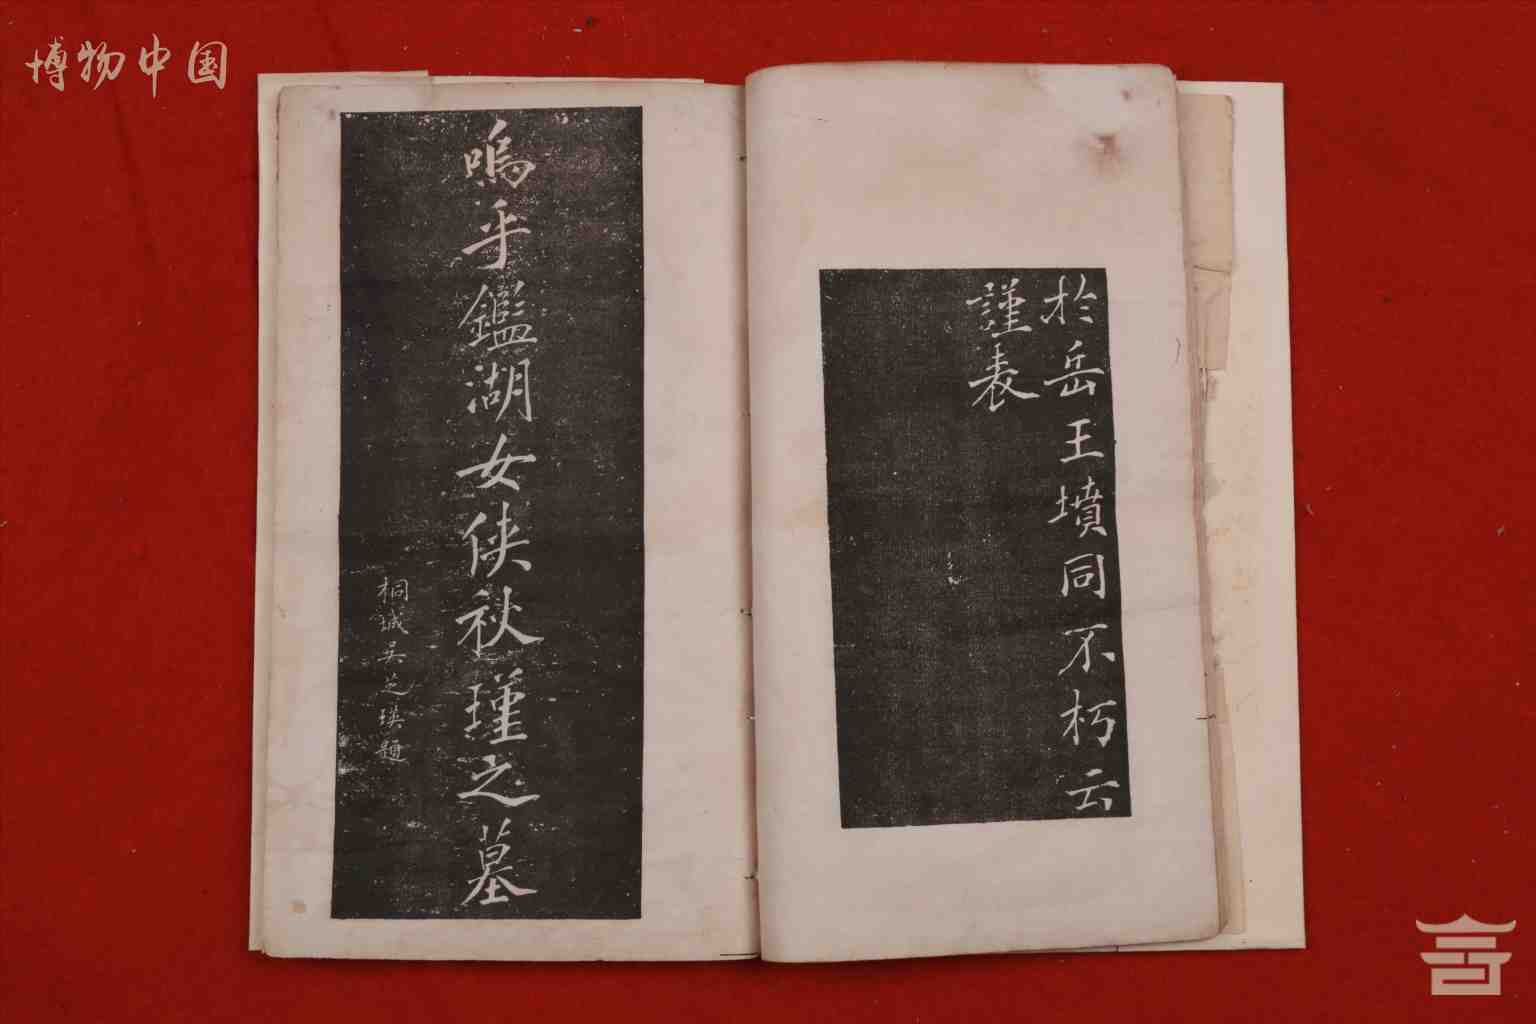 博物中国
於岳王墳同不朽云
謹表
嗚乎鑑湖女俠秋瑾之墓
桐城吳芝瑛題